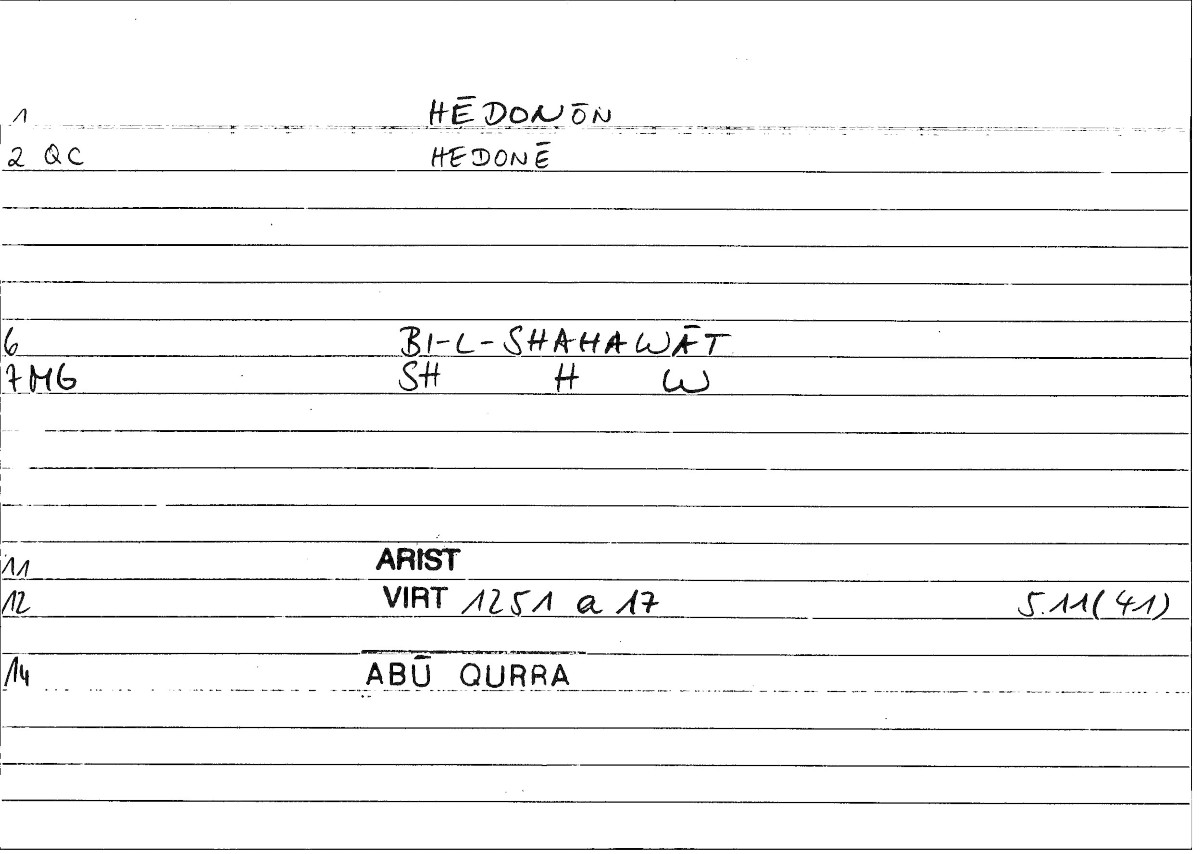 1 HĒDONŌN
2 QC HEDONĒ
6 BI-L-SHAHAWĀT
7 MG SH H W
11 ARIST
12 VIRT 1251 a 17 5.11(41)
14 ABŪ QURRA